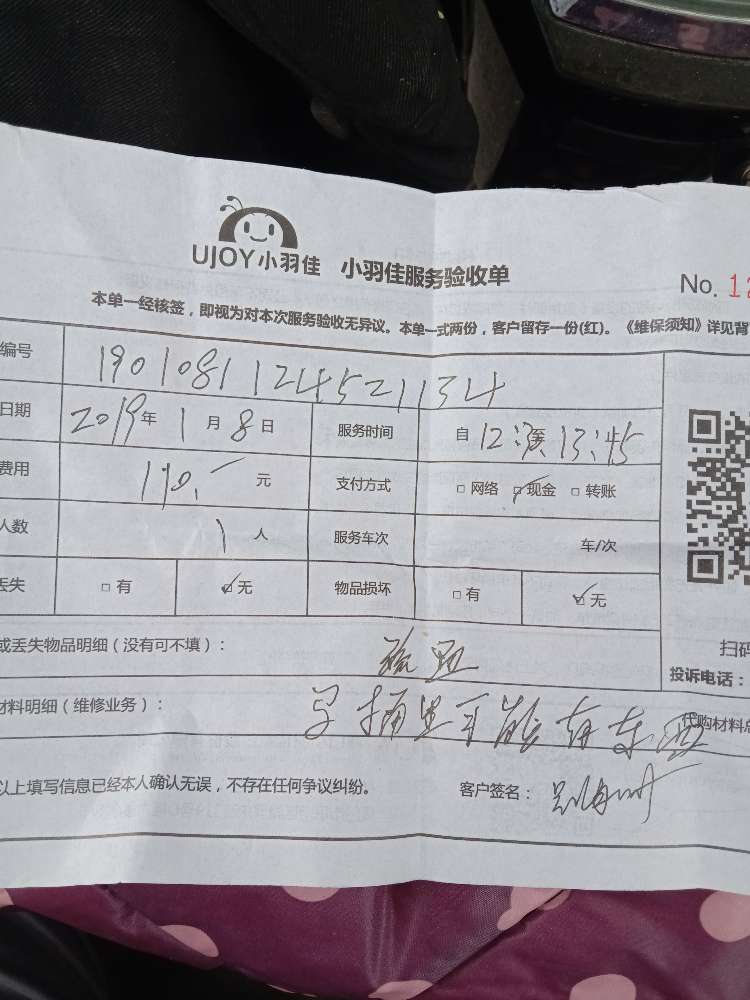 UJOY小羽佳 小羽佳服务验收单
No. 12
本单一经核签，即视为对本次服务验收无异议。本单一式两份，客户留存一份(红)。《维保须知》详见背
编号 1901081124521134
日期 2019年1月8日 服务时间 自12: 13:45
费用 110.- 元 支付方式 □网络 ☑现金 □转账
人数 1人 服务车次 车/次
丢失 □有 ☑无 物品损坏 □有 ☑无
或丢失物品明细（没有可不填）：
扫码
投诉电话：
材料明细（维修业务）： 有东西
代购材料总
以上填写信息已经本人确认无误，不存在任何争议纠纷。 客户签名：